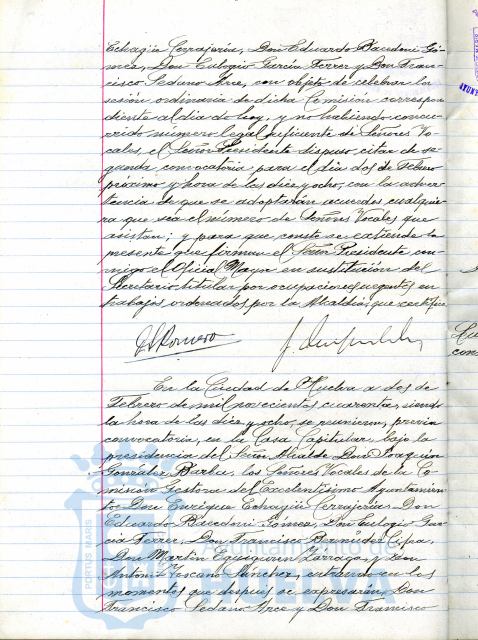 Echagüe Cerrajerías, Don Eduardo Bacedoni Gó-
mez, Don Eulogio García Ferrer y Don Fran-
cisco Sedano Arce, con objeto de celebrar la
sesión ordinaria de dicha Comisión correspon-
diente al día de hoy, y no habiendo concu-
rrido número legal suficiente de Señores Vo-
cales, el Señor Presidente dispuso citar de se-
gunda convocatoria para el día dos de Febrero
próximo y hora de las diez y ocho, con la adver-
tencia de que se adoptarán acuerdos cualquie-
ra que sea el número de Señores Vocales que
asistan; y para que conste se extiende la
presente que firman el Señor Presidente con-
migo el Oficial Mayor en sustitución del
Secretario titular por ocupaciones urgentes en
trabajos ordenados por la Alcaldía, que certifico
Romero
En la Ciudad de Huelva a dos de
Febrero de mil novecientos cuarenta, siendo
la hora de las diez y ocho, se reunieron, previa
convocatoria, en la Casa Capitular, bajo la
presidencia del Señor Alcalde Don Joaquín
González Barba, los Señores Vocales de la Co-
misión Gestora del Excelentísimo Ayuntamien-
to Don Enrique Echagüe Cerrajerías, Don
Eduardo Bacedoni Gómez, Don Eulogio Gar-
cía Ferrer, Don Francisco Bernárdez
Don Martín Zarraga, y Don
Antonio Toscano Sánchez, entrando en los
momentos que después se expresarán, Don
Francisco Sedano Arce y Don Francisco
PORTUS MARIS
Ayuntamiento de